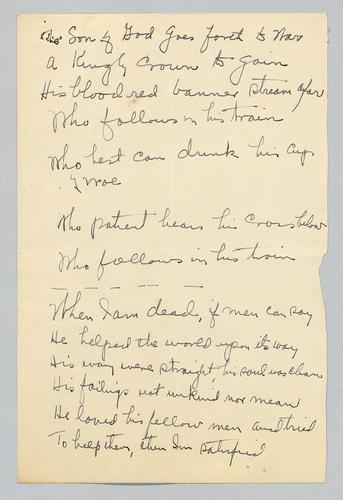 The Son of God Goes forth to War
A Kingly Crown to gain
His blood red banner streams afar
Who follows in his train
Who best can drink his cup
of woe
Who patient bears his Cross below
Who follows in his train
When I am dead, if men can say
He helped the world upon its way
His way were straight, his soul was clean
His failings not unkind nor mean
He loved his fellow men and tried
To help them, then I'm satisfied